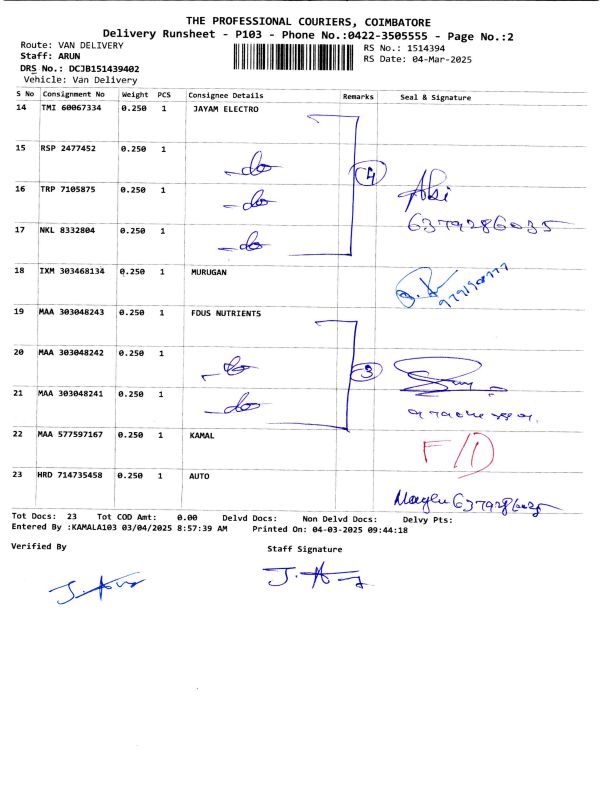 THE PROFESSIONAL COURIERS, COIMBATORE
Delivery Runsheet - P103 - Phone No.:0422-3505555 - Page No.:2
Route: VAN DELIVERY
RS No.: 1514394
Staff: ARUN
RS Date: 04-Mar-2025
DRS No.: DCJB151439402
Vehicle: Van Delivery
S No Consignment No Weight PCS Consignee Details Remarks Seal & Signature
14 TMI 60067334 0.250 1 JAYAM ELECTRO
15 RSP 2477452 0.250 1
-do
4
16 TRP 7105875 0.250 1
-do
6379286035
17 NKL 8332804 0.250 1
-do
18 IXM 303468134 0.250 1 MURUGAN
19 MAA 303048243 0.250 1 FDUS NUTRIENTS
20 MAA 303048242 0.250 1
-do
3
21 MAA 303048241 0.250 1
-do
22 MAA 577597167 0.250 1 KAMAL
F/D
23 HRD 714735458 0.250 1 AUTO
Tot Docs: 23 Tot COD Amt: 0.00 Delvd Docs: Non Delvd Docs: Delvy Pts:
Entered By :KAMALA103 03/04/2025 8:57:39 AM Printed On: 04-03-2025 09:44:18
Verified By
Staff Signature